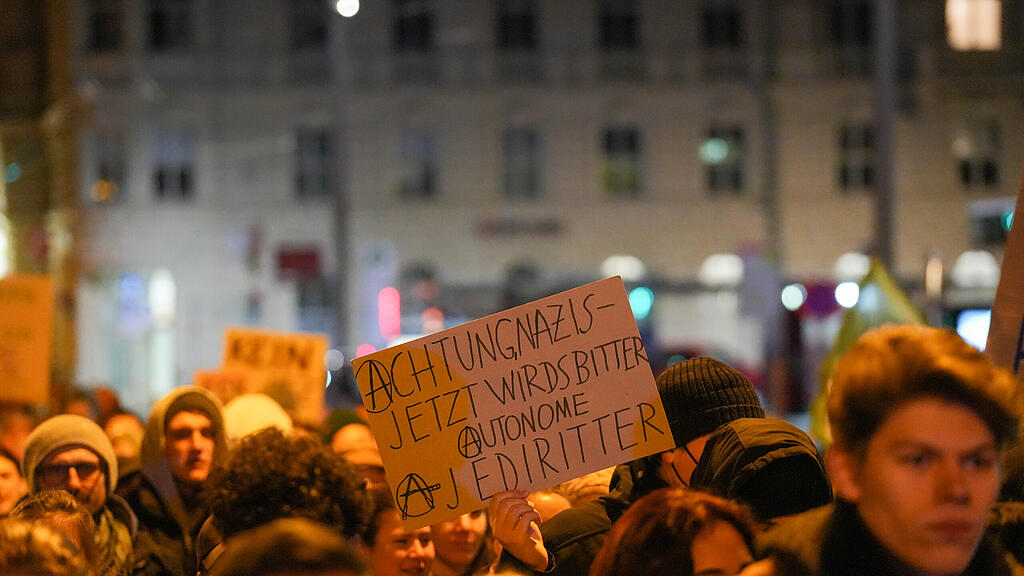 ACHTUNG,NAZIS-
JETZT WIRDS BITTER
AUTONOME
A-JEDIRITTER
KEIN